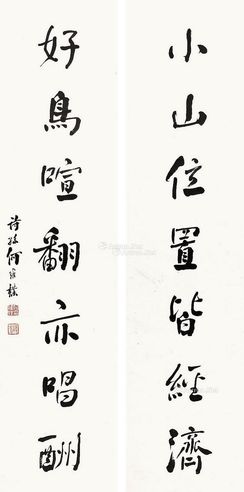 小山位置皆經濟
好鳥喧翻亦唱酬
詩孫何維樸